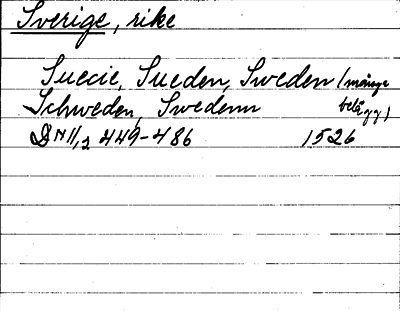 Sverige, rike
Suecie, Sueden, Sweden (många
Schweden, Swedenn belägg)
DN II,2 449-486 1526